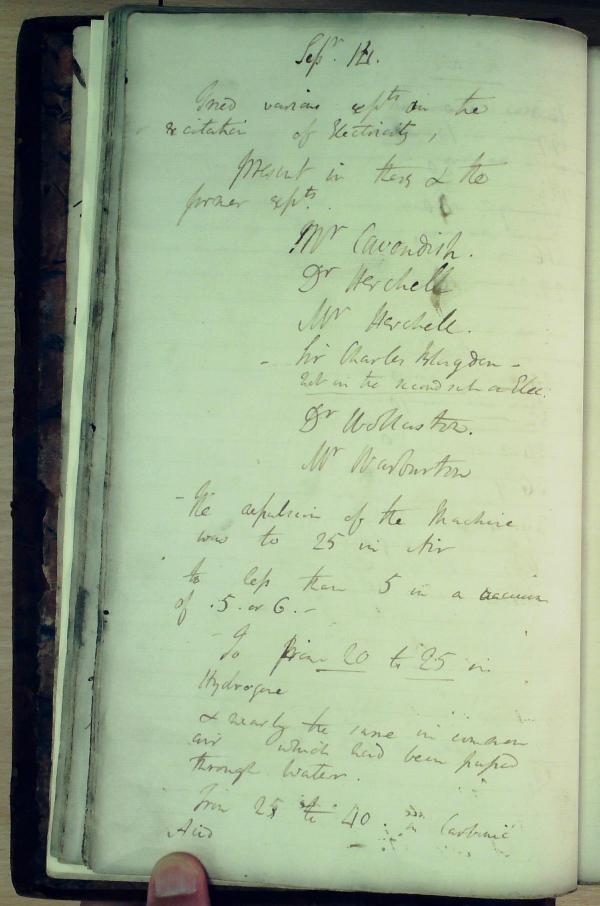 Sepr. 14.
Tried various expts on the
excitation of Electricity,
present in these & the
former expts.
Mr Cavendish.
Dr Herchell
Mr Herchell.
- Sir Charles Blagden -
not in the second set on Elec.
Dr Wollaston.
Mr Warburton
- The repulsion of the Machine
was to 25 in Air
to less than 5 in a vacuum
of .5. or 6. -
- To from 20 to 25 in
Hydrogene
& nearly the same in common
air which had been passed
through Water.
From 25 to 40. in Carbonic
Acid